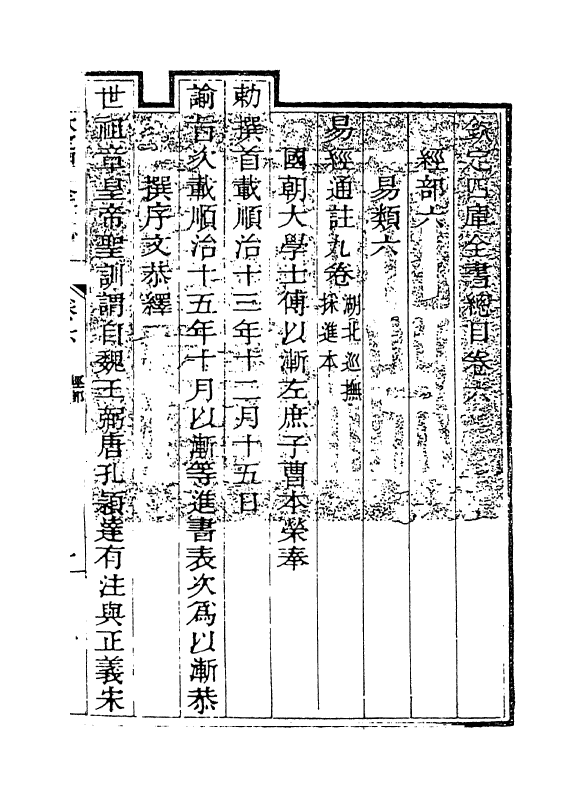 欽定四庫全書總目卷六
經部六
易類六
易經通註九卷湖北巡撫採進本
國朝大學士傅以漸左庶子曹本榮奉
勅撰首載順治十三年十二月十五日
諭旨次載順治十五年十月以漸等進書表次為以漸恭
撰序文恭繹
世祖章皇帝聖訓謂自魏王弼唐孔穎達有注與正義朱
經部